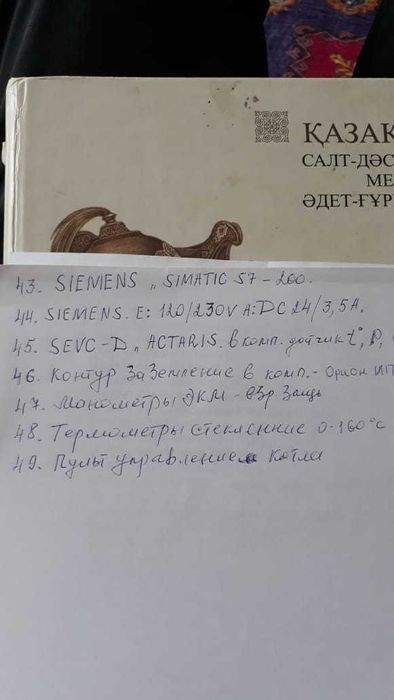 ҚАЗАҚ
САЛТ-ДӘС
МЕ
ӘДЕТ-ҒҰР
43. SIEMENS „ SIMATIC S7-200.
44. SIEMENS. E: 120/230V A: DC 24/3,5A.
45. SEVC-D „ ACTARIS. в комп. датчик t°, P,
46. Контур заземление в комп. - Орион ИП
47. Манометры ЭКМ - взр. Защ
48. Термометры стеклянние 0-160°C
49. Пульт управление котла